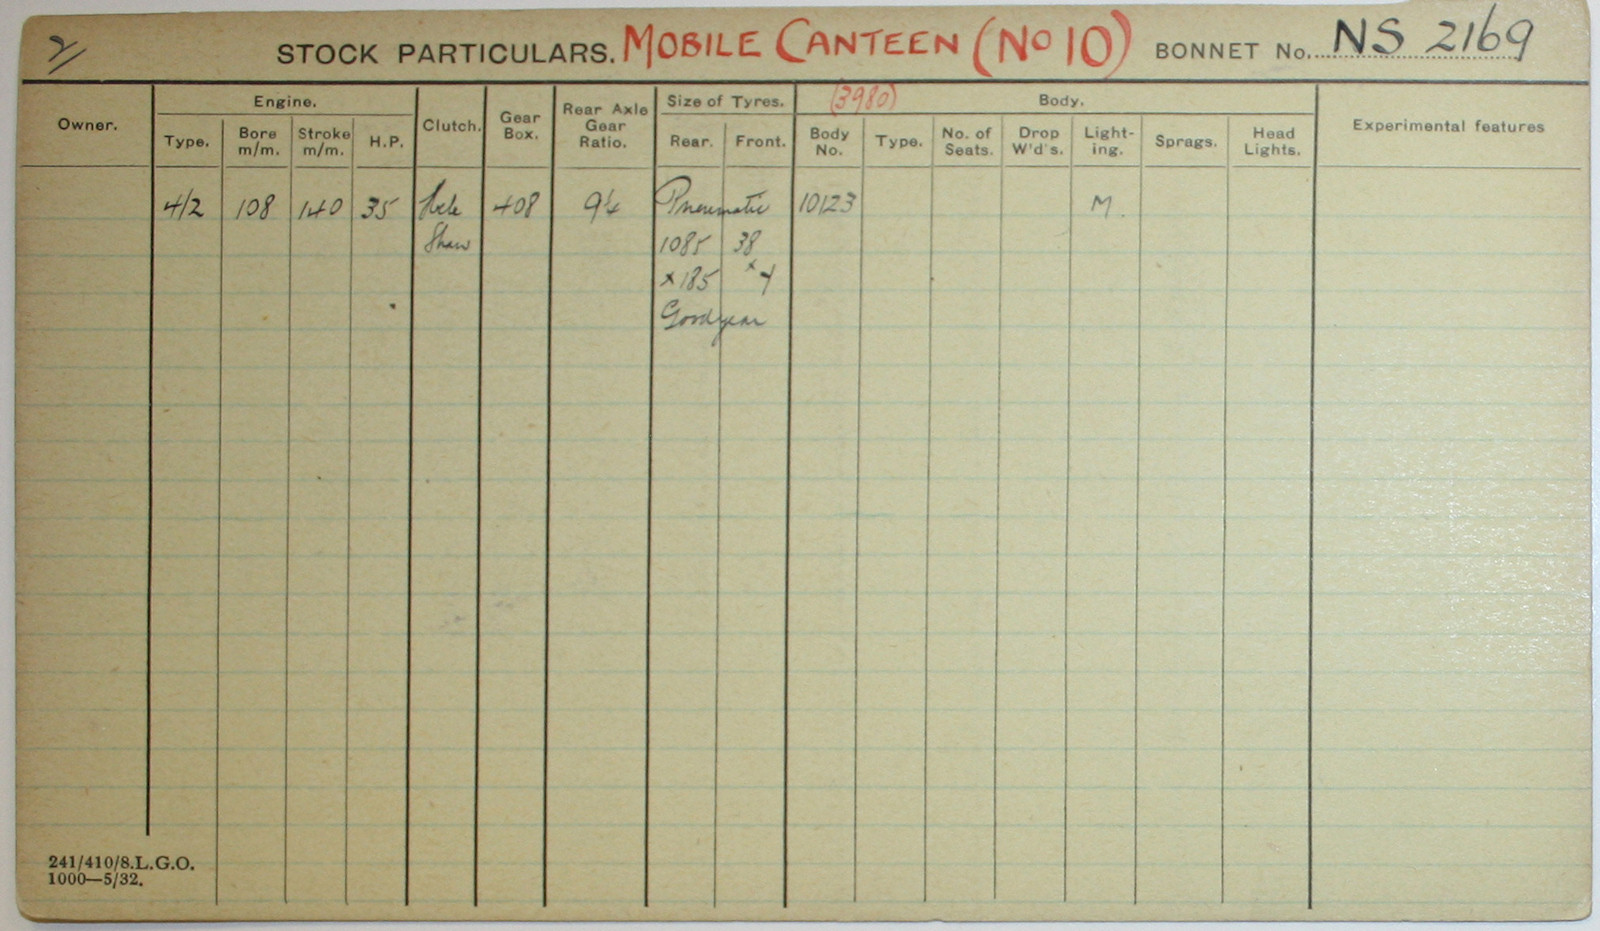 2/
STOCK PARTICULARS. MOBILE CANTEEN (No 10) BONNET No. NS 2169
Owner. Engine. Clutch. Gear Box. Rear Axle Gear Ratio. Size of Tyres. (3980) Body. Experimental features
Type. Bore m/m. Stroke m/m. H.P. Rear. Front. Body No. Type. No. of Seats. Drop W'd's. Light-ing. Sprags. Head Lights.
4/2 108 140 35 Hele 408 9¼ Pneumatic 10123 M.
Shaw 1085 38
x 185 x 4
Goodyear
241/410/8.L.G.O.
1000—5/32.